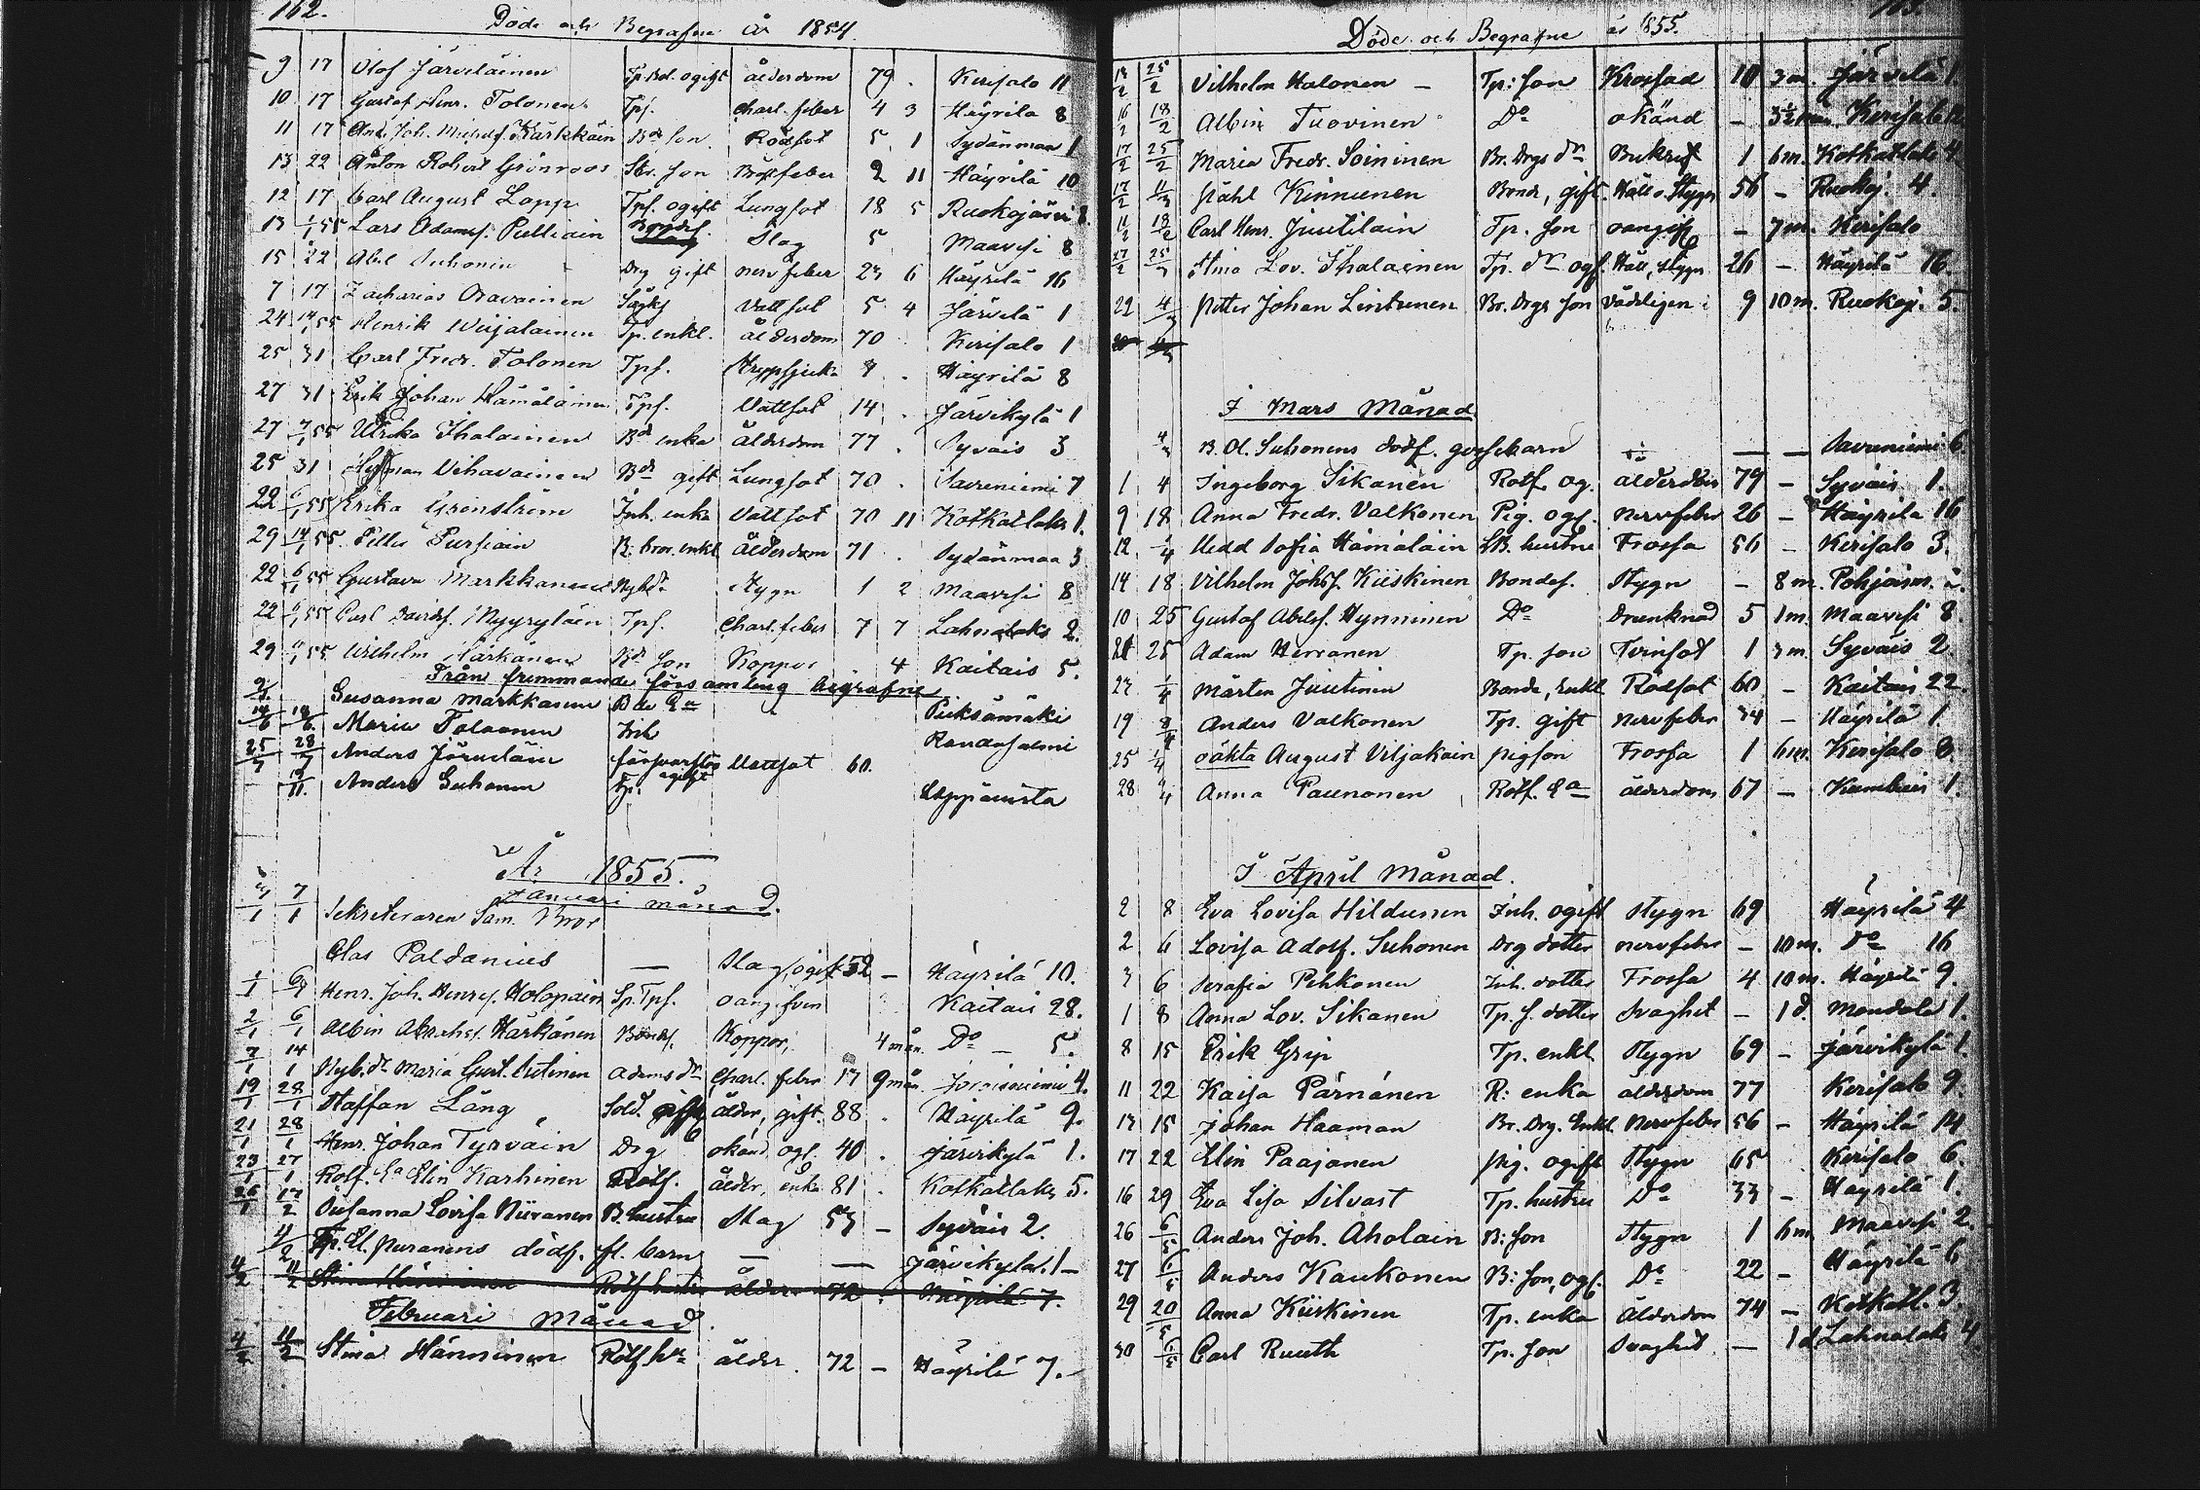 162.
Döde och Begrafne År 1854.
9 17 Olof Järveläinen Tp. Bd. ogift ålderdom 79 . Kerisalo 11
10 17 Gustaf Henr. Tolonen Tpf. Charl. feber 4 3 Häyrilä 8
11 17 And. Joh. Kärkkäin Bde Son Rödsot 5 1 Sydänmaa 1
13 22 Anton Robert Grönroos Son feber 2 11 Häyrilä 10
12 17 Carl August Lapp Tpf. ogift Lungsot 18 5 Ruokojärvi
13 1/1 55 Lars Adamsf. Pulliain Slag 5 Maavesi 8
15 22 Abel Suhonin Drg gift nervfeber 23 6 Häyrilä 16
7 17 Zacharias Oravainen Vattsot 5 4 Järvelä 1
24 14/1 55 Henrik Wiijalainen Tp. enkl. ålderdom 70 Kerisalo 1
25 31 Carl Fredr. Tolonen Tpf. Häyrilä 8
27 31 Erik Johan Hämäläinen Tpf. Vattsot 14 . Järvikylä 1
27 7/1 55 Ulrika Ihalainen Bde enka Ålderdom 77 . Syväis 3
25 31 Herman Vihavainen Bde gift Lungsot 70 . Savuniemi 7
22 6/1 55 Erika Grenström Inh. enka Vattsot 70 11 Kotkatlaks 1.
29 14/1 55 Pursiain enkl. Ålderdom 71 . Sydänmaa 3
22 6/1 55 Gustava Markkanen Stygn 1 2 Maavesi 8
22 6/1 55 Davidsf. Myyryläin Tpf. Charl. feber 7 7 Lahnalaks 2.
29 6/1 55 Wilhelm Härkänen Bde Son Koppor . 4 Kaitais 5.
Från frimmande församling begrafne
Susanna Markkanen Pieksämäki
14/6 18/6. Maria Tolaanen Inh Randasalmi
25/7 28/7 Anders Järveläin Vattsot 60.
Anders Suhonen Tp.
År 1855.
Januari månad.
7/1 Sekreteraren Sam. Bror
Clas Paldanius — Slag, ogift 52 – Häyrilä 10.
1/1 6/1 Henr. Joh. Henrsf. Holopain Sp. Tpf. oangifven Kaitais 28.
2/1 6/1 Albin Abrahsf. Härkänen Bondes. Koppor, 4 mån. Do – 5.
7/1 14/1 Nyb. dr Maria Gust. Autinen Adams dr Charl. feber 17 9 mån. 4.
19/1 28/1 Staffan Lång Sold. ålder, gift. 88 . Häyrilä 9.
21/1 28/1 Henr. Johan Tyrväin Drg okänd, ogf. 40 . Järvikylä 1.
23/1 27/1 Rotf. Ea Elin Karhinen Rotf. ålder, enka 81 . Kotkatlaks 5.
26/1 17/2 Susanna Lovisa Niiranen B. hustru Slag 53 – Syväis 2.
11/2 Tp. El. Puranens dödf. fl. barn — — Järvikylä. 1 –
4/2 11/2 Stina Hänninen Rotf hustru ålder 72 Häyrilä 7.
Februari Månad.
4/2 11/2 Stina Hänninen Rotf hu ålder . 72 – Häyrilä 7. –
Döde och Begrafne år 1855.
25/2 Vilhelm Halonen – Tp: Son Krossad 10 3 m. Järvelä 1.
16/2 18/2 Albin Tuovinen Do okänd – Kerisalo
17/2 25/2 Maria Fredr. Soininen Br. Drgs dr 1 6 m. Kotkatlaks 4.
17/2 11/3 Påhl Kinnunen Bonde, gift. Håll o. Stygn 56 – Ruokoj. 4.
11/2 18/2 Carl Henr. Juutilain Tp. Son oangif – 7 m. Kerisalo
17/2 25/2 Stina Lov. Ihalainen Tp. dr ogf. Håll, stygn 26 – Häyrilä 16.
22 4/3 Petter Johan Lintunen Br. Drgs Son vådeligen 9 10 m. Ruokoj. 5.
I Mars Månad
4/3 B. Ol. Suhonens dödf. gossebarn — — Savuniemi 6.
1 4 Ingeborg Sikanen Rotf. og. ålderdom 79 – Syväis 1.
9 18 Anna Fredr. Valkonen Pig. ogf. nervfeber 26 – Häyrilä 16
12 1/4 Hedd Sofia Hämäläin hustru Frossa 56 – Kerisalo 3.
14 18 Vilhelm Johsf. Kiiskinen Bondes. Stygn – 8 m.
10 25 Gustaf Abelsf. Hynninen Do Drunknad 5 1 m. Maavesi 8.
21 25 Adam Herranen Tp. son Tvinsot 1 3 m. Syväis 2
27 1/4 Mårten Juutinen Bonde, Enkl Rödsot 60 – Kaitais 22.
19 8/4 Anders Valkonen Tp. gift nervfeber 34 – Häyrilä 1.
25 1/4 oäkta August Viljakain pigson Frossa 1 6 m. Kerisalo 8.
28 9/4 Anna Paunonen Rotf. Ea ålderdom 67 – 1.
I April Månad.
2 8 Eva Lovisa Hildunen Inh. ogift Stygn 69 Häyrilä 4
2 6 Lovisa Adolf. Suhonen Drg dotter nervfeber – 10 m. Do 16
3 6 Serafia Pehkonen Inh. dotter Frossa 4 10 m. Häyrilä 9.
1 8 Anna Lov. Sikanen Tp. f. dotter Svaghet – 1 d. Mondola 1.
8 15 Erik Grip Tp. enkl. Stygn 69 – Järvikylä 1.
11 22 Kaisa Pärnänen R: enka ålderdom 77 Kerisalo 9.
13 15 Johan Haaman Br. Drg. Enkl. Nervfeber 56 – Häyrilä 14
17 22 Elin Paajanen pig. ogift Stygn 65 Kerisalo 6.
16 29 Eva Lisa Silvast Tp. hustru Do 33 – Häyrilä 1.
26 6/5 Anders Joh. Aholain B: Son Stygn 1 6 m Maavesi 2.
27 6/5 Anders Kaukonen B: Son, ogf. Do 22 – Häyrilä 6
29 20/5 Anna Kiiskinen Tp. enka Ålderdom 74 – Kotkatl. 3.
30 6/5 Carl Ruuth Tp. Son Svaghet — 1 d. Lahnalaks 4.